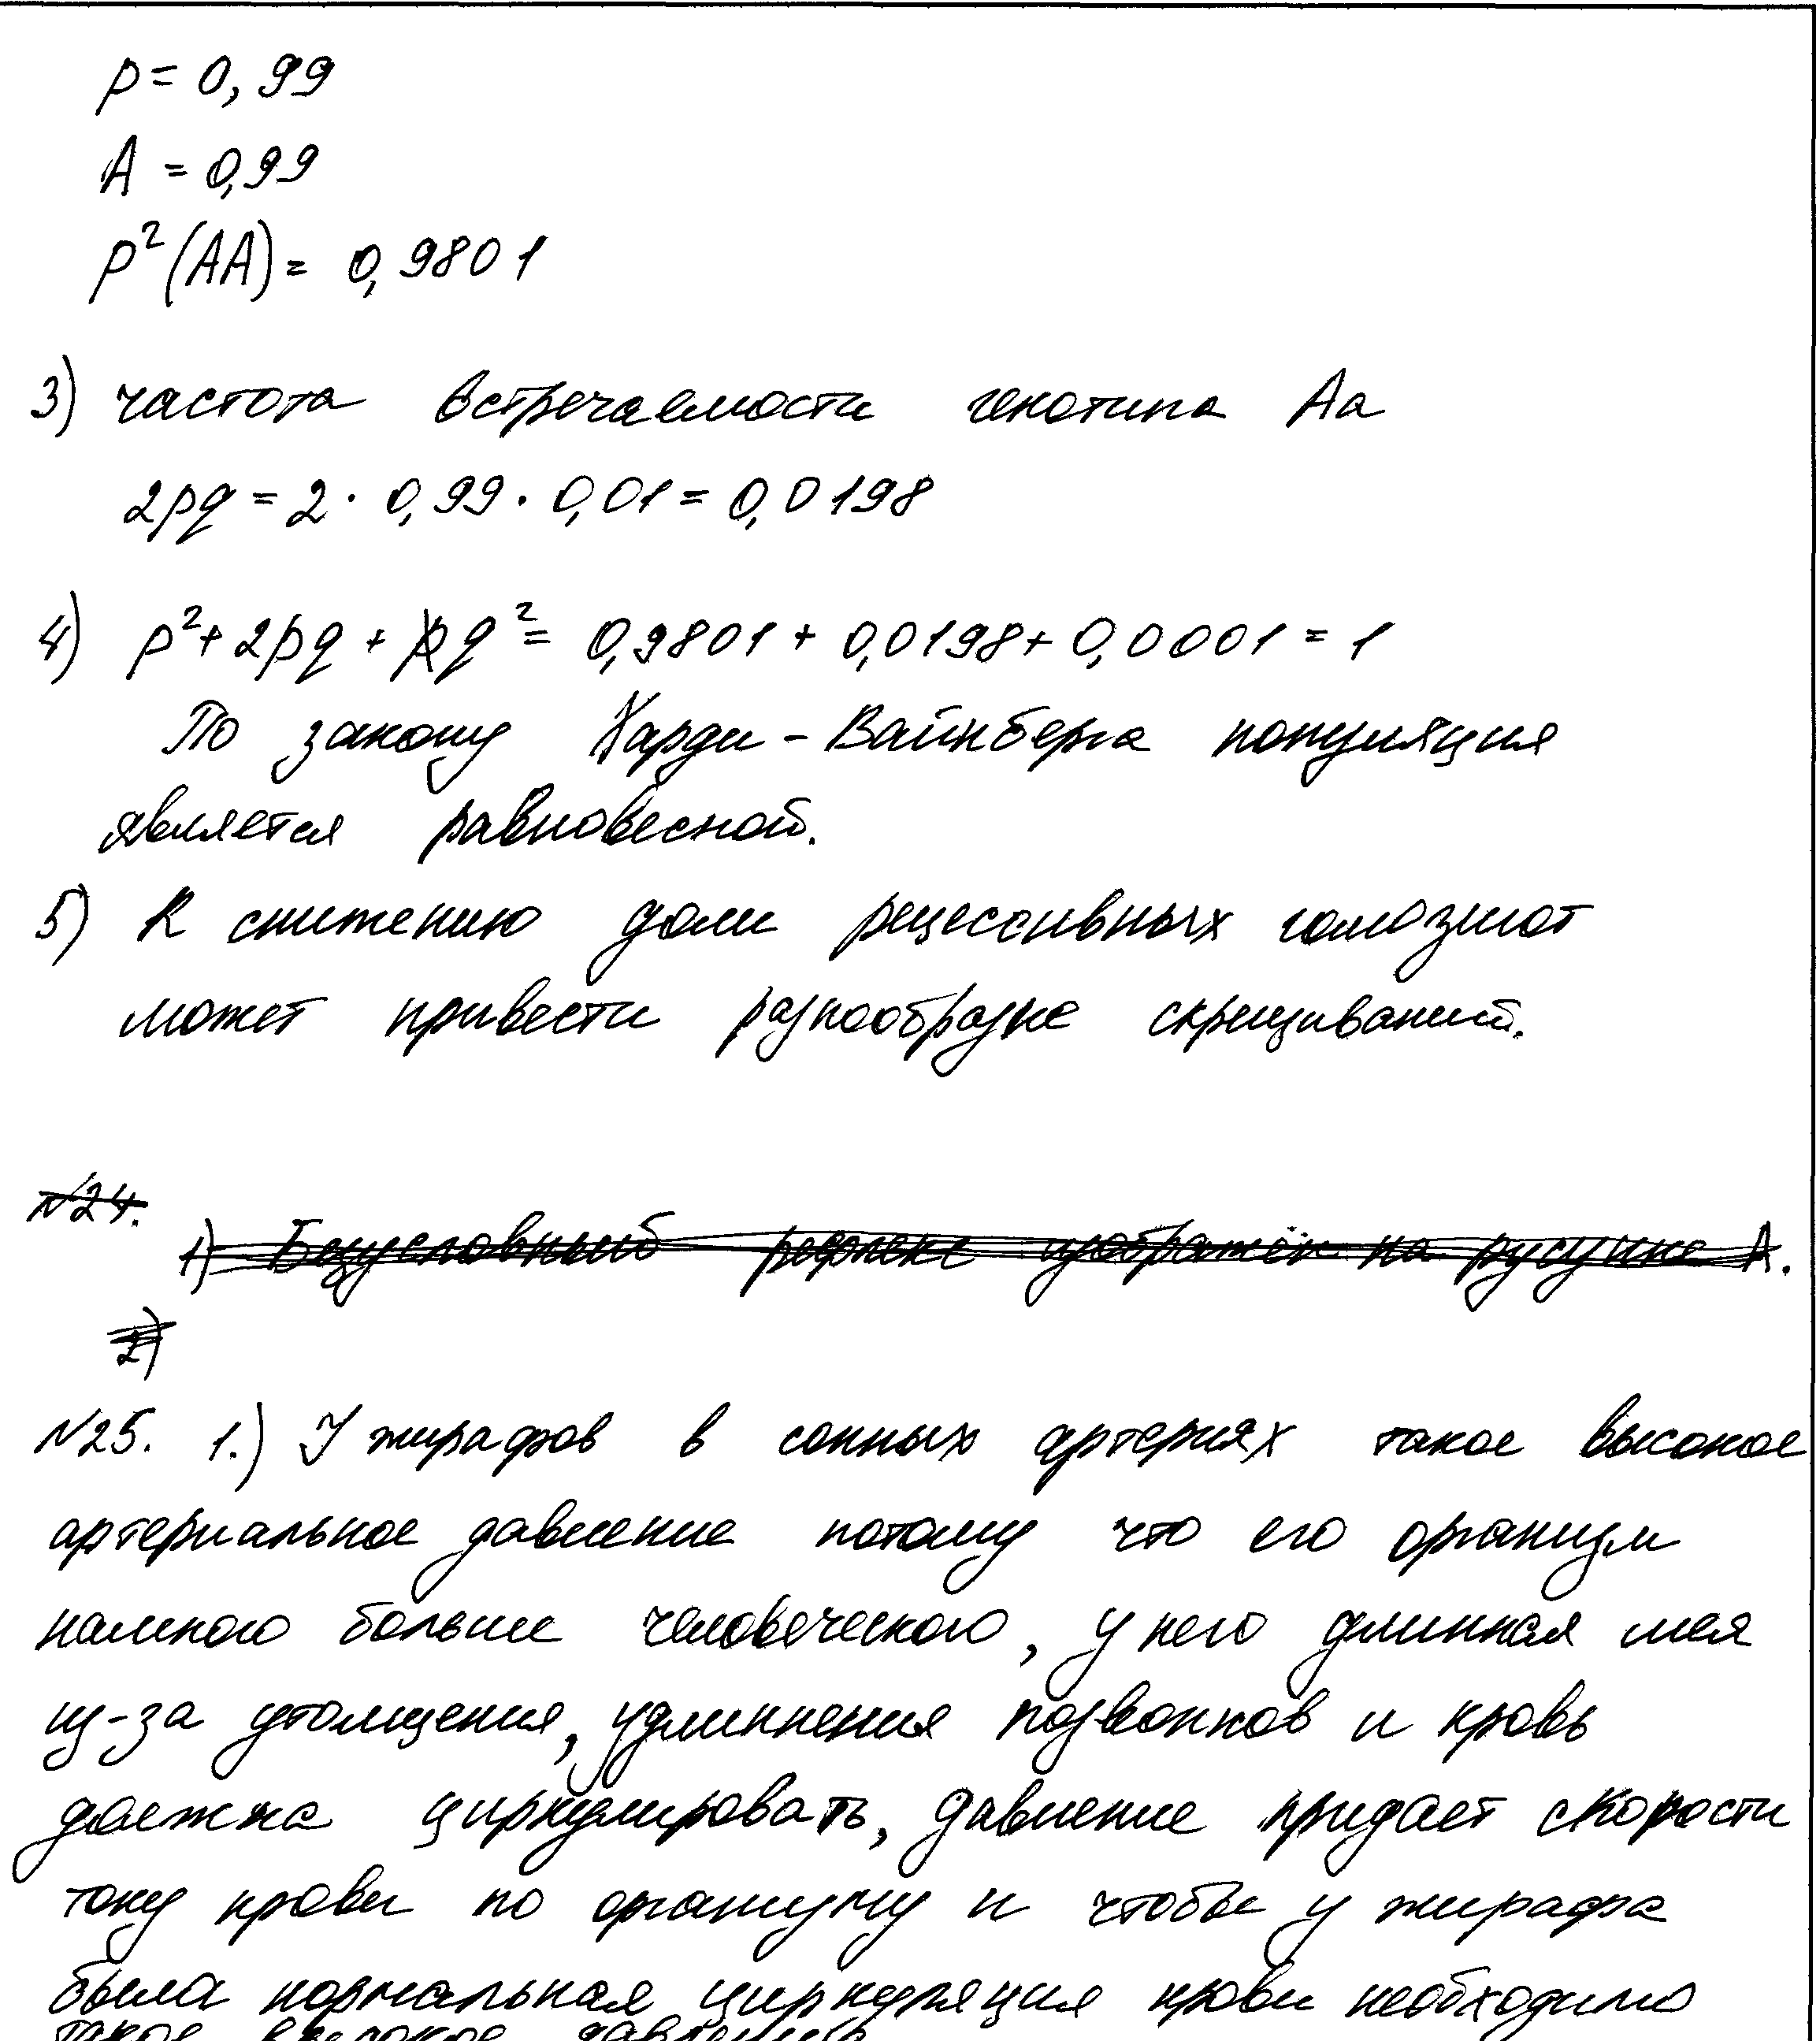 p = 0,99
A = 0,99
p² (AA) = 0,9801
3) частота встречаемости генотипа Aa
2pq = 2 · 0,99 · 0,01 = 0,0198
4) p² + 2pq + q² = 0,9801 + 0,0198 + 0,0001 = 1
По закону Харди - Вайнберга популяция
является равновесной.
5) К снижению доли рецессивных гомозигот
может привести разнообразие скрещиваний.
№24.
1) Безусловный рефлекс изображён на русунке А.
2)
№25. 1.) У жирафов в сонных артериях такое высокое
артериальное давление потому что его организм
намного больше человеческого, у него длинная шея
из-за утолщения, удлиннения позвонков и кровь
должна циркулировать, давление придает скорости
току крови по организму и чтобы у жирафа
была нормальная циркуляция крови необходимо
такое высокое давление